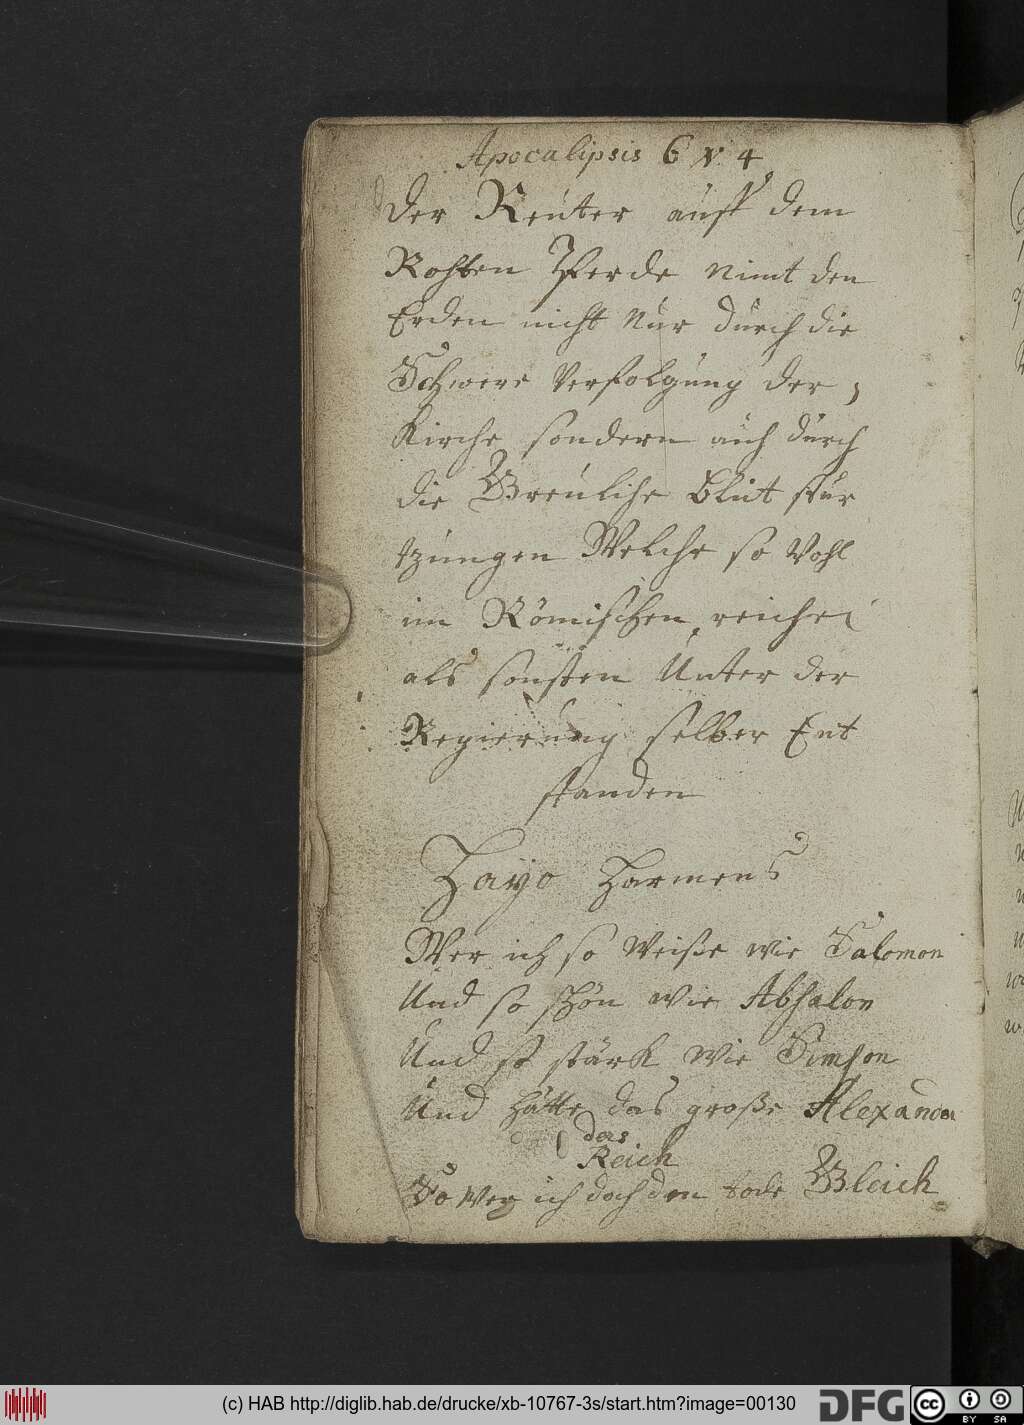 Apocalipsis 6 v 4
der Reuter auff dem
Rohten Pferde nimt den
Erden nicht nur durch die
Schwere Verfolgung der
Kirche sondern auch durch
die Greuliche Blut stur
tzungen Welche so Wohl
im Römischen reiche
als sonsten Unter der
Regierung selber Ent
standen
Hayo Harmens
Wer ich so Weiße wie Salomon
Und so schön wie Absalon
Und so stark wie Simson
Und hätte das große Alexander
das
Reich
So wer ich doch den tode Gleich
(c) HAB http://diglib.hab.de/drucke/xb-10767-3s/start.htm?image=00130
DFG
cc BY SA